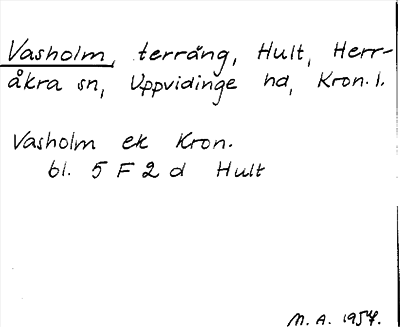 Vasholm, terräng, Hult, Herr-
åkra sn, Uppvidinge hd, Kron. l.
Vasholm ek Kron.
bl. 5 F 2 d Hult
M. A. 1957.